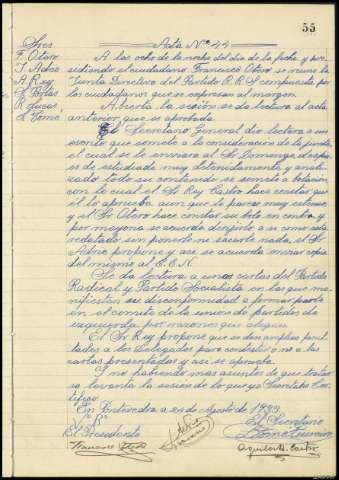 55
Sres
F. Otero
J. Adrio
A. Rey
R. Lucas
Acta Nº 44
A las ocho de la noche del dia de la fecha y pre-
sidiendo el ciudadano Francisco Otero se reune la
Junta Directiva del Partido R. R. S compuesta por
los ciudadanos que se expresan al margen.
Abierta la sesión se da lectura al acta
anterior que es aprobada.
El Secretario General dio lectura a un
escrito que somete a la consideracion de la junta,
el cual se le enviara al Sr Domenge despues
de estudiado muy detenidamente y anali-
zado todo su contenido se somete a botacion
con lo cual el Sr Rey Castro hace constar que
el lo aprueba aun que le parece muy extenso
y el Sr Otero hace constar su boto en contra, y
por mayoria se acuerda dirigirlo a si como esta
redatado sin ponerle ni sacarle nada, el Sr
Adrio propone y asi se acuerda enviar copia
del mismo al C. E. N.
Se da lectura a unas cartas del Partido
Radical y Partido Socialista en las que ma-
nifiestan su disconformidad a formar parte
en el comite de la union de partidos de
izquierda por razones que alegan
El Sr Rey propone que se den amplias facul-
tades a los Delegados para contestar o no a las
cartas presentadas y asi se aprueba.
Y no habiendo mas asuntos de que tratar
se levanta la sesión de lo que yo Secretario Cer-
tifico.
En Pontevedra a 24 de Agosto de 1933
Vº Bº
El Secretario
El Presidente
Francisco Otero
Adrio
Aquilino R. Castro